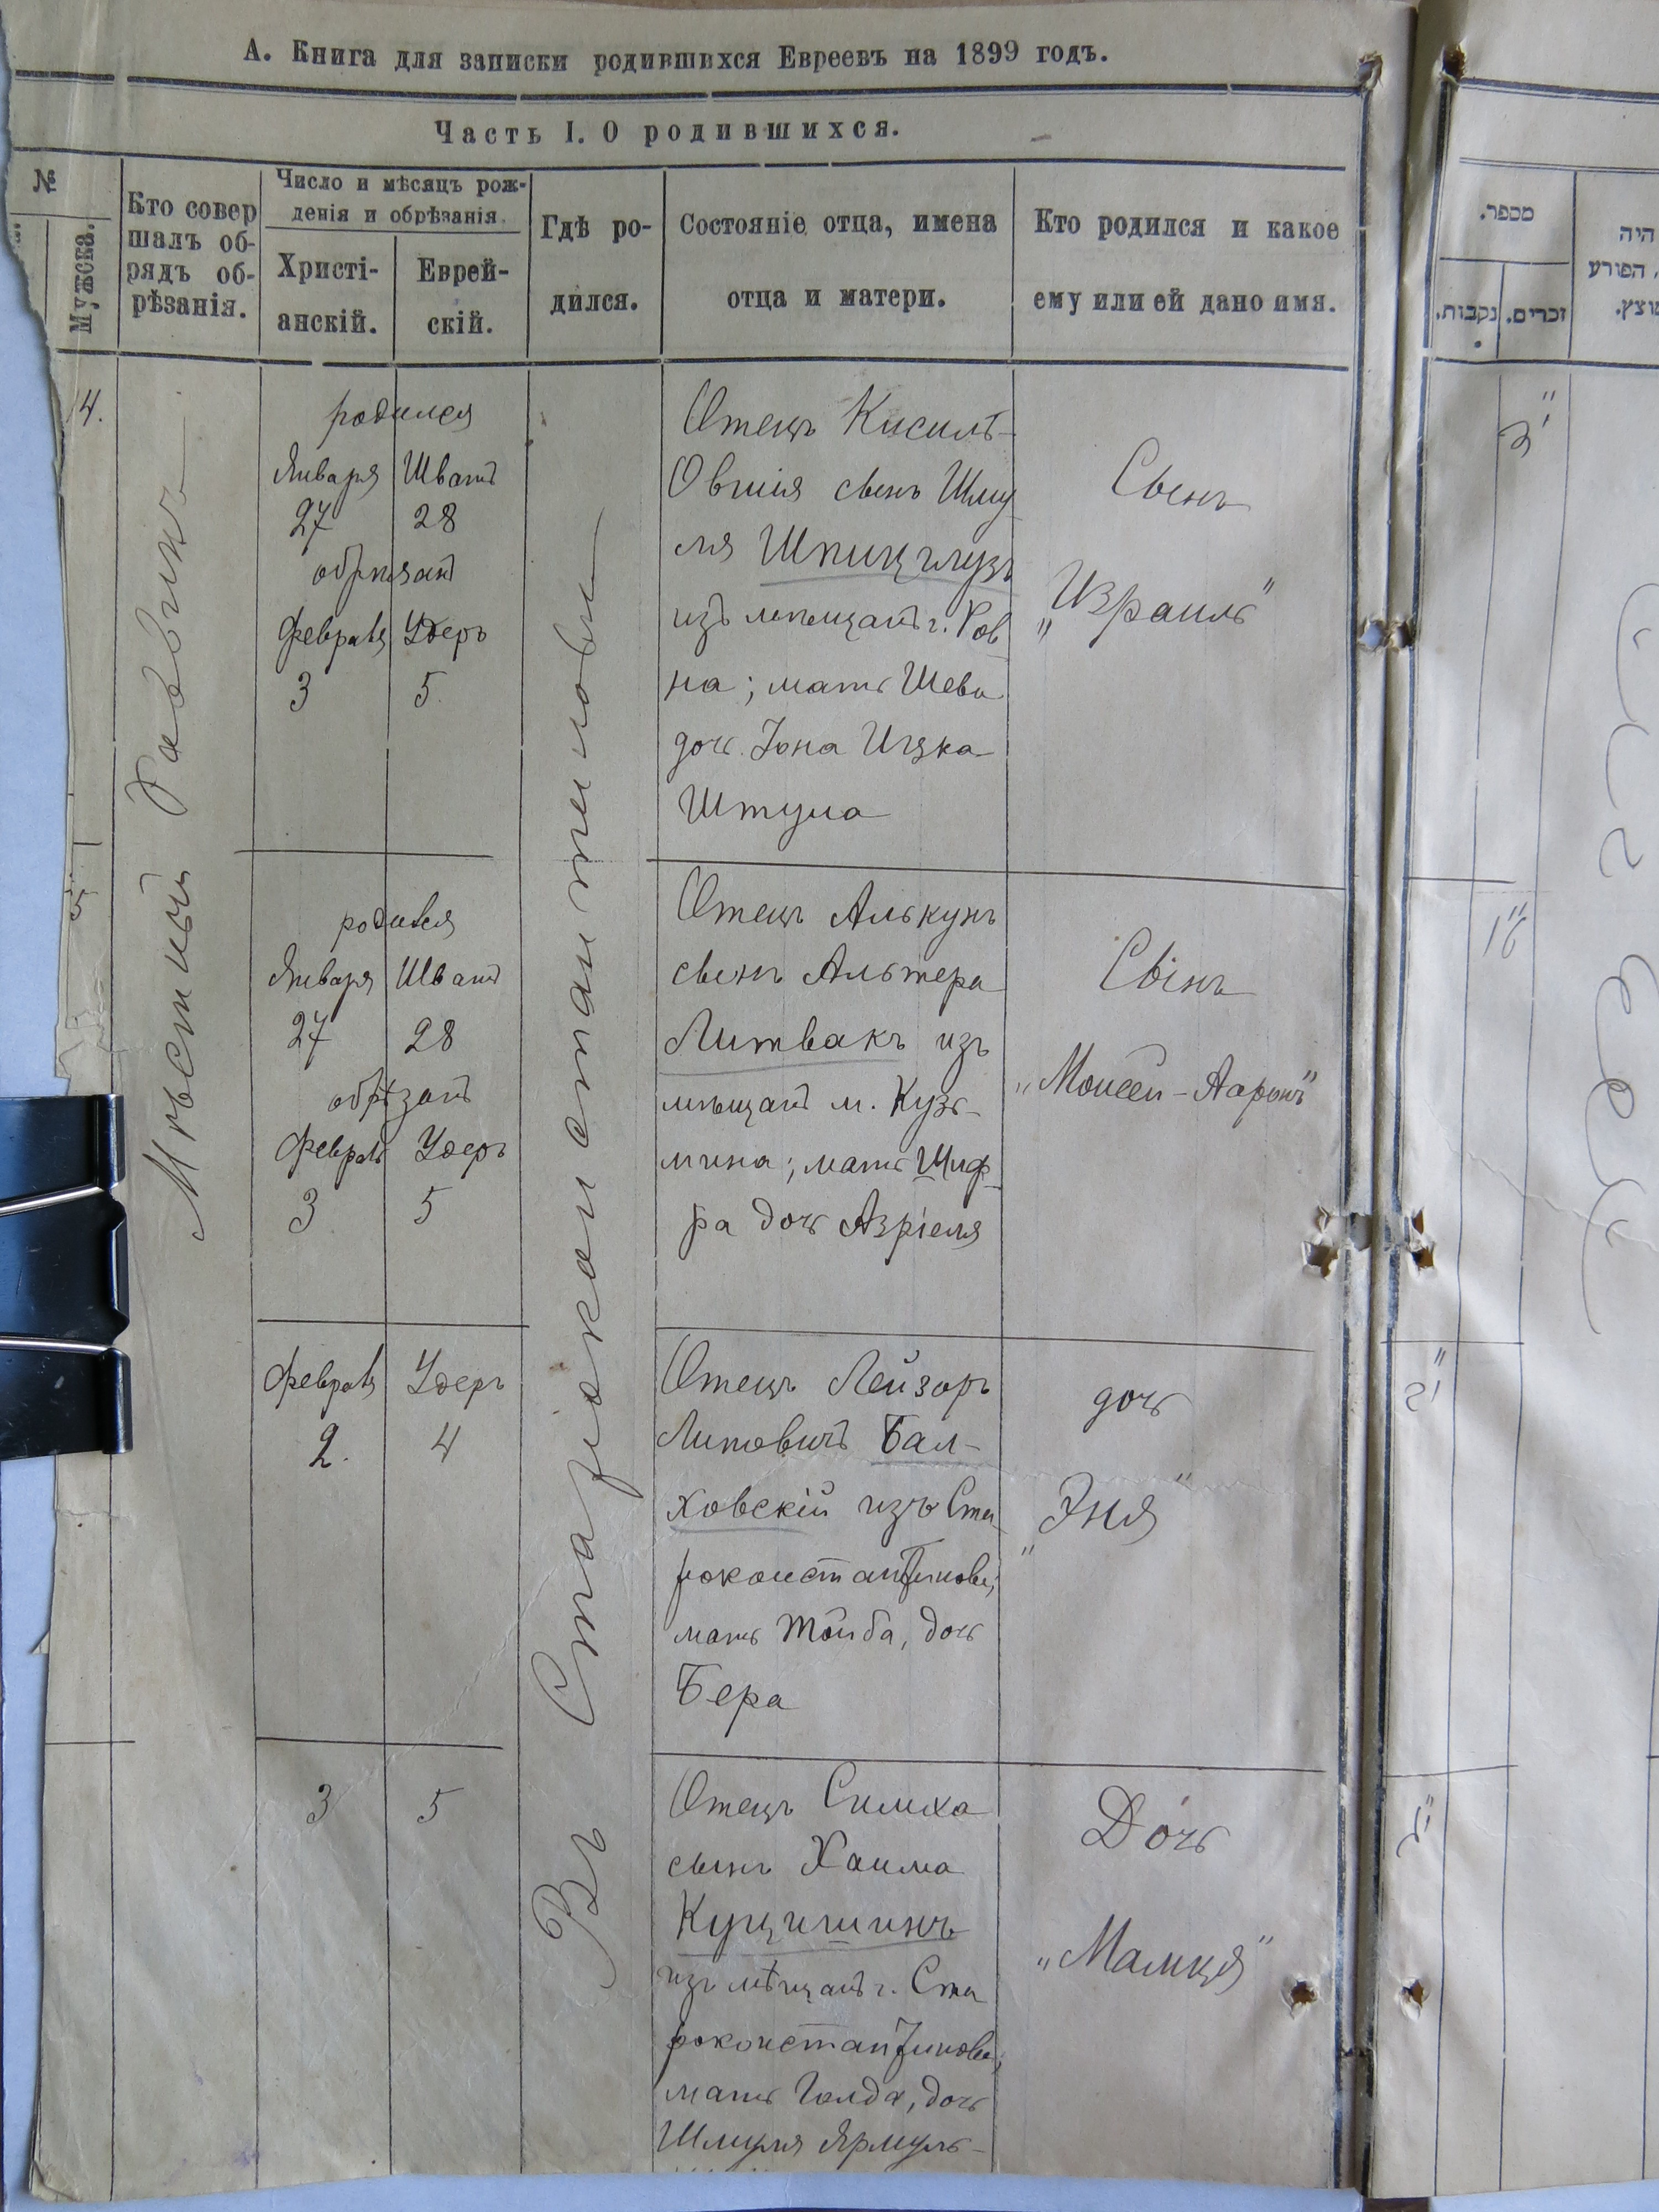 А. Книга для записки родившихся Евреевъ на 1899 годъ.
Часть I. О родившихся.
№
Мужска.
Кто совер
шалъ об-
рядъ об-
рѣзанія.
Число и мѣсяцъ рож-
денія и обрѣзанія.
Христі-
анскій.
Еврей-
скій.
Гдѣ ро-
дился.
Состояніе отца, имена
отца и матери.
Кто родился и какое
ему или ей дано имя.
4.
Мѣстный Раввинъ
родился
Января Шватъ
27 28
обрѣзанъ
Февраля Удеръ
3 5.
Въ Старіоконстантиновѣ
Отецъ Кисиль-
Овшія сынъ Шму
ля Шпицглузъ
изъ мѣщанъ г. Ров
на; мать Шева
дочь Іона Ицка
Штула
Сынъ
„Израиль"
5
родився
Января Шватъ
27 28
обрѣзанъ
Февраль Удеръ
3 5
Отецъ Алькунъ
сынъ Альтера
Литвакъ изъ
мѣщанъ м. Кузь-
мина; мать Шиф-
ра дочь Азріеля
Сынъ
„Моисей-Ааронъ"
Февраля Удеръ
2. 4
Отецъ Лейзоръ
Липовичъ Бал-
ховскій изъ Ста
роконстантинова;
мать Тойба, дочь
Бера
дочь
„Эня"
3 5
Отецъ Симха
сынъ Хаима
Куцишинъ
изъ мѣщанъ г. Ста
роконстантинова;
мать Голда, дочь
Шмуля Ярмуль-
Дочь
„Мамця"
מספר.
נקבות.
זכרים.
היה
הפורע